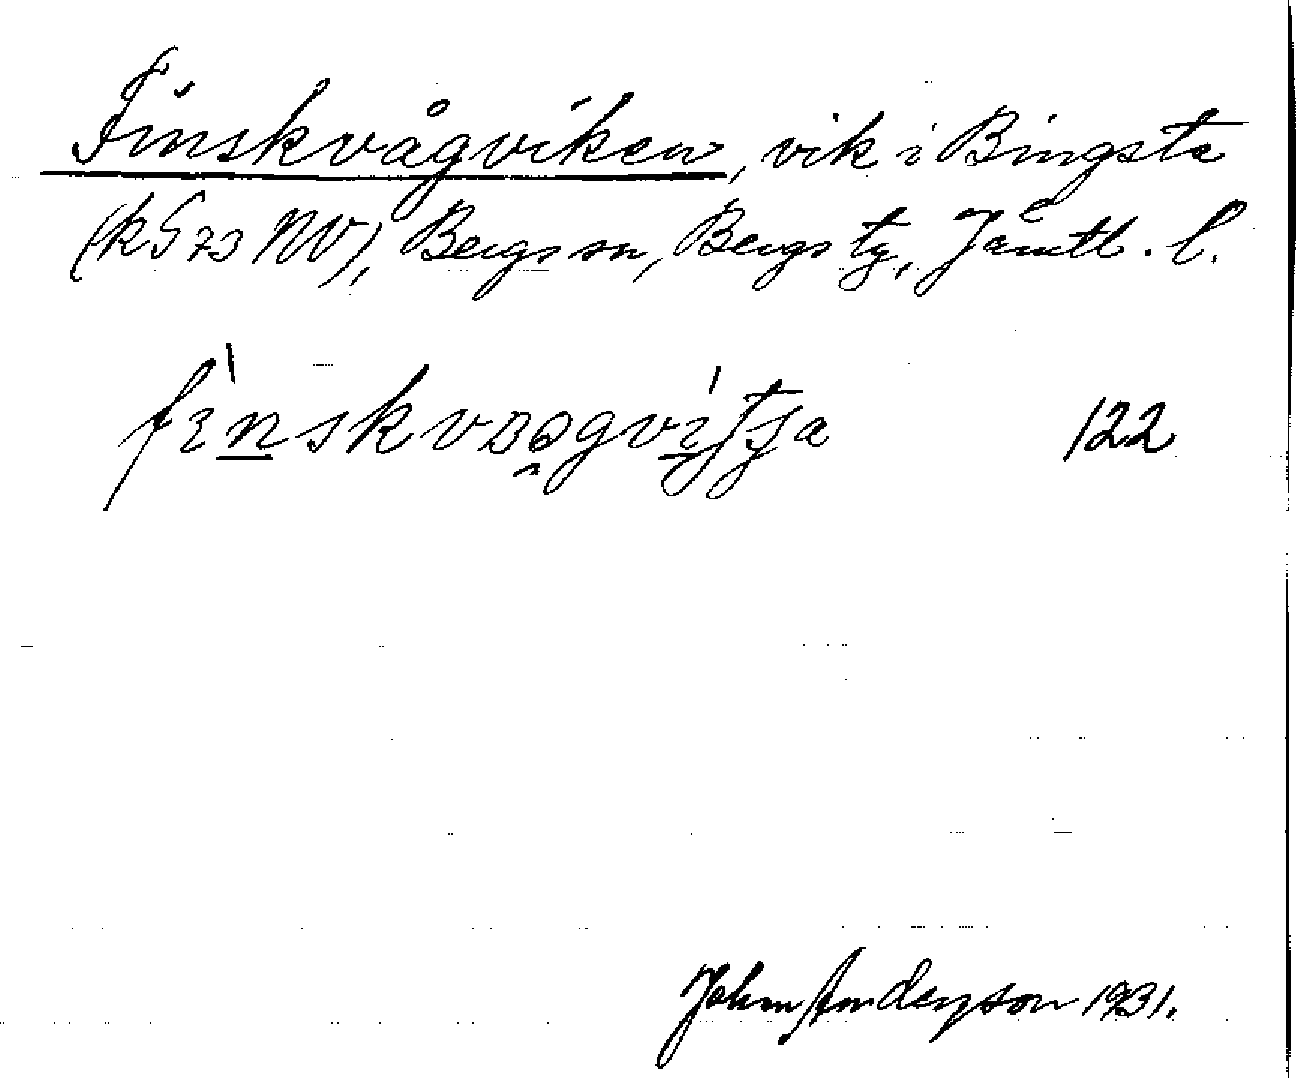 Finskvågviken, vik i Bingsta
(kS 73 NV), Bergs sn, Bergs tg, Jämtl. l.
122
John Anderson 1931.